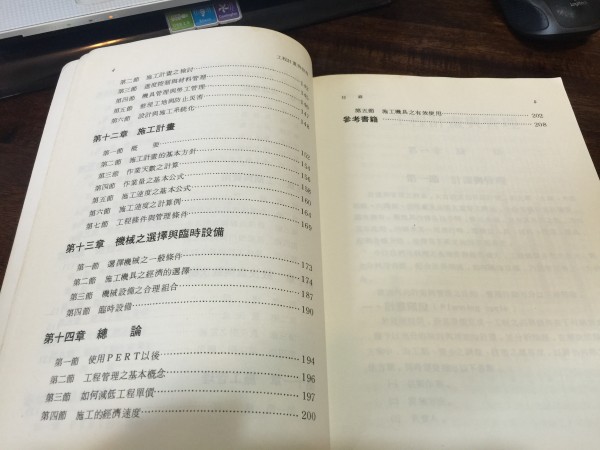 第二節 施工計畫之檢討
第三節 進度控制與材料管理
第四節 機具管理與勞工管理
第五節 整理工地與防止災害
第六節 設計與施工系統化
第十二章 施工計畫
第一節 概 要 152
第二節 施工計畫的基本方針
第三節 作業天數之計算 154
第四節 作業量之基本公式 156
第五節 施工速度之基本公式 158
第六節 施工速度之計算例 160
第七節 工程條件與管理條件 164
169
第十三章 機械之選擇與臨時設備
第一節 選擇機械之一般條件 173
第二節 施工機具之經濟的選擇 174
第三節 機械設備之合理組合 187
第四節 臨時設備 190
第十四章 總 論
第一節 使用PERT以後 194
第二節 工程管理之基本概念 196
第三節 如何減低工程單價 197
第四節 施工的經濟速度 200
目 錄
第五節 施工機具之有效使用 202
參考書籍 208